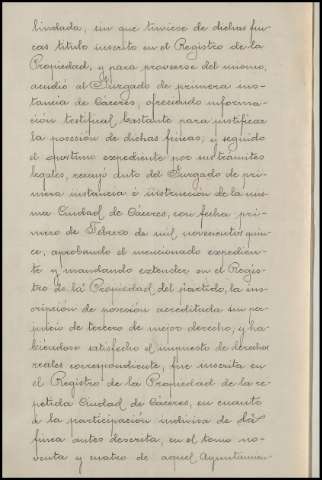 lindada, sin que tuviese de dichas fin-
cas titulo inscrito en el Registro de la
Propiedad, y para proveerse del mismo,
acudió al Juzgado de primera ins-
tancia de Cáceres, ofreciendo informa-
ción testifical, bastante para justificar
la posesión de dichas fincas; y seguido
el oportuno expediente por sus trámites
legales, recayó auto del Juzgado de pri-
mera instancia é instrucción de la mis-
ma Ciudad de Cáceres, con fecha pri-
mero de Febrero de mil novecientos quin-
ce, aprobando el mencionado expedien-
te y mandando extender en el Regis-
tro de la Propiedad del partido, la ins-
cripción de posesión acreditada sin per-
juicio de tercero de mejor derecho; y ha-
biendose satisfecho el impuesto de derechos
reales correspondiente, fué inscrita en
el Registro de la Propiedad de la re-
petida Ciudad de Cáceres, en cuanto
á la participación indivisa de la
finca antes descrita, en el tomo no-
venta y cuatro de aquel Ayuntamien-